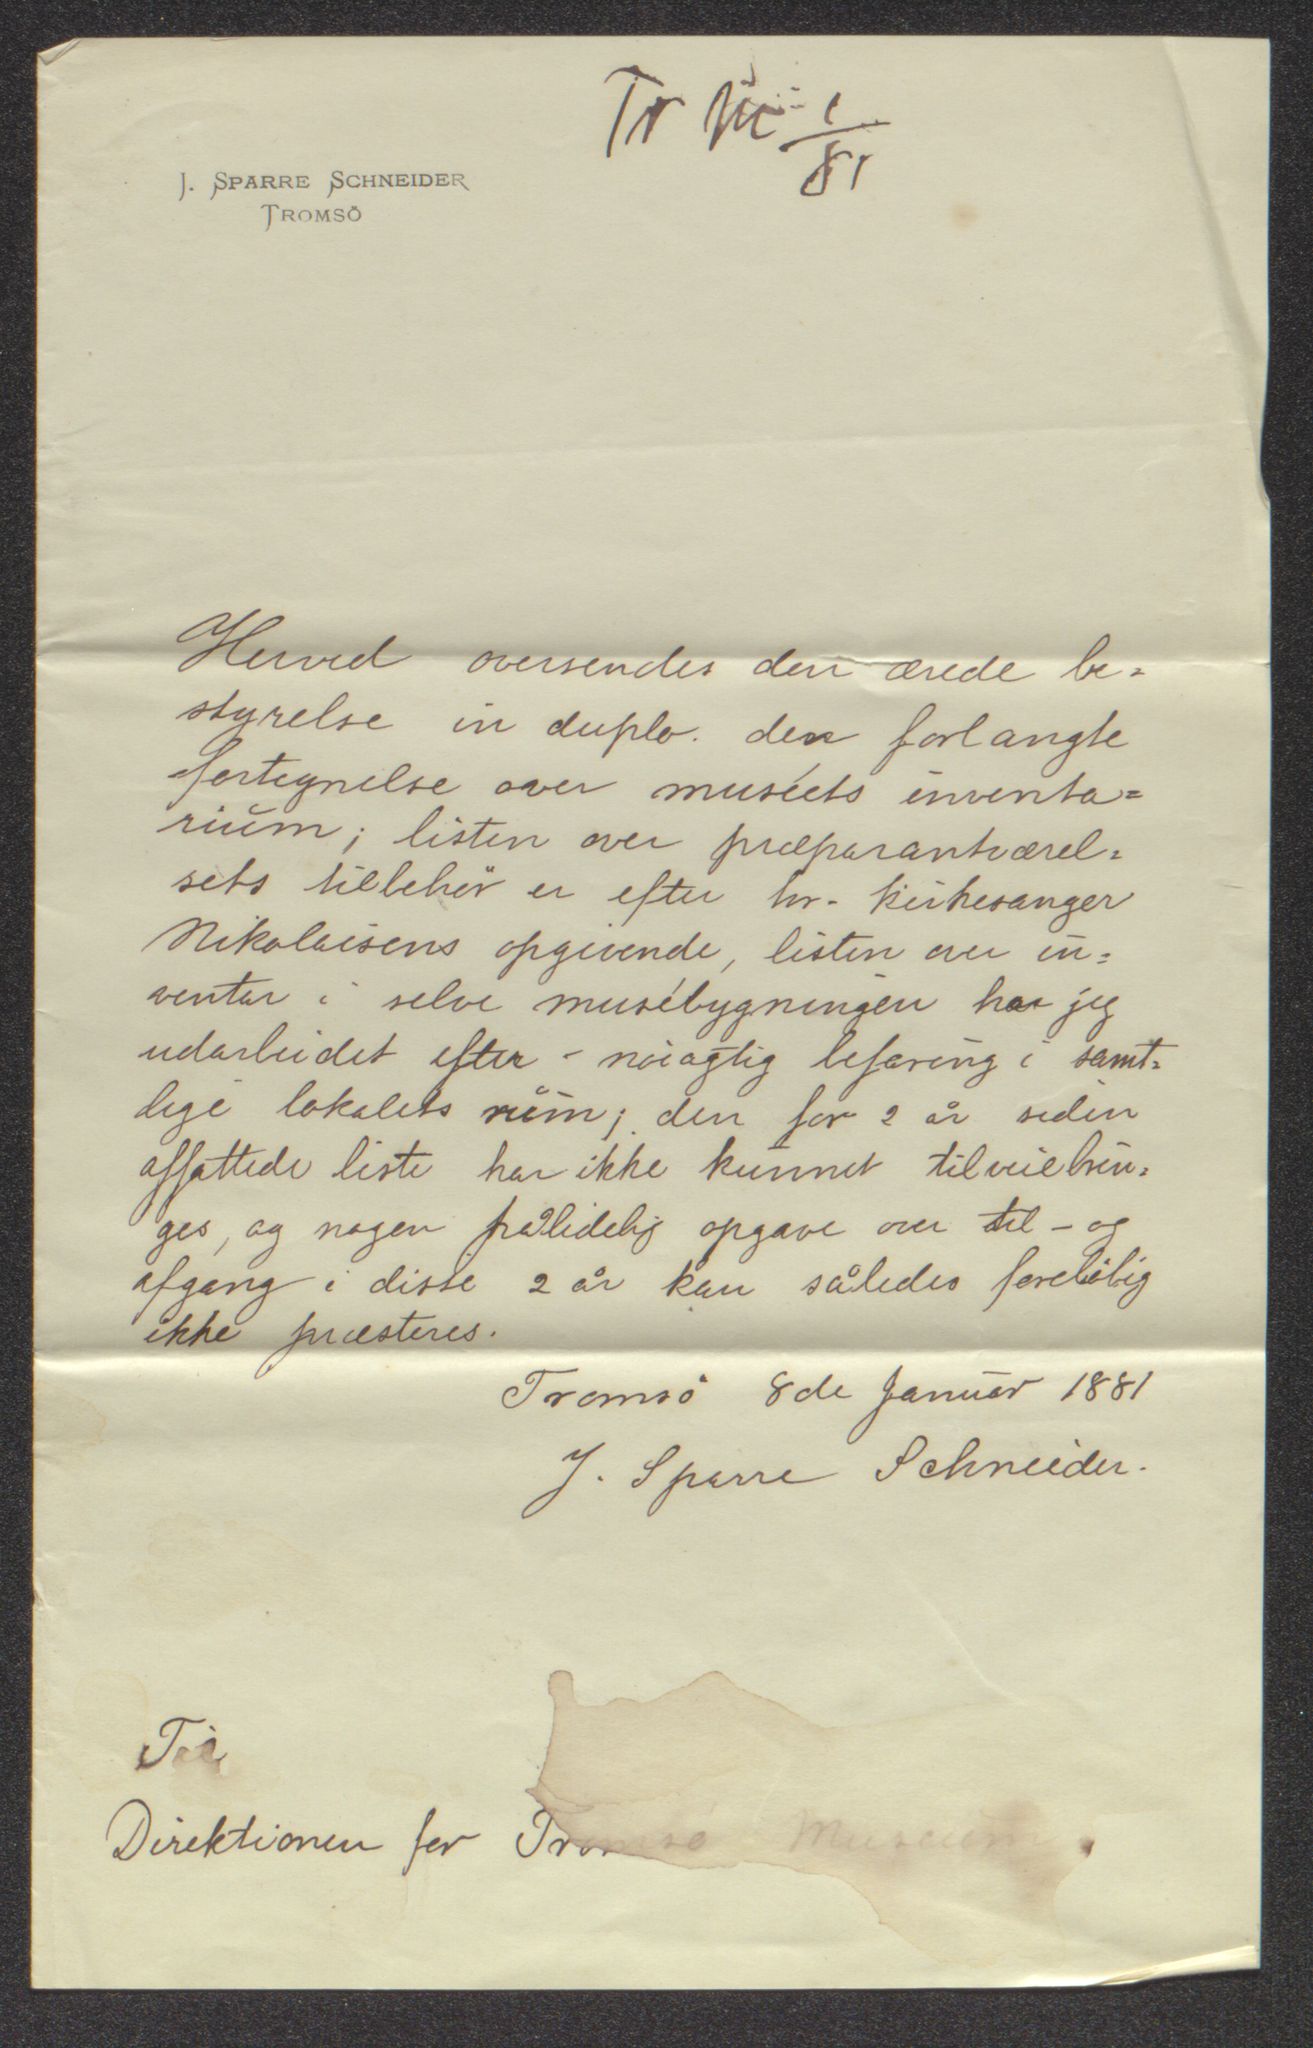 Tr Mc 1/81
J. SPARRE SCHNEIDER
TROMSÖ
Herved oversendes den ærede be=
styrelse in duplo. den forlangte
fortegnelse over muséets inventa=
rium; listen over præparantværel=
sets tilbehör er efter hr. kirkesanger
Nikolaisens opgivende, listen over in=
ventar i selve musébygningen har jeg
udarbeidet efter nöiagtig befaring i samt=
lige lokalets rum; den for 2 år siden
affattede liste har ikke kunnet tilveiebrin=
ges, og nogen pålidelig opgave over til- og
afgang i disse 2 år kan således forelöbig
ikke præsteres.
Tromsö 8de Januar 1881
J. Sparre Schneider.
Til
Direktionen for Tromsö Museum.